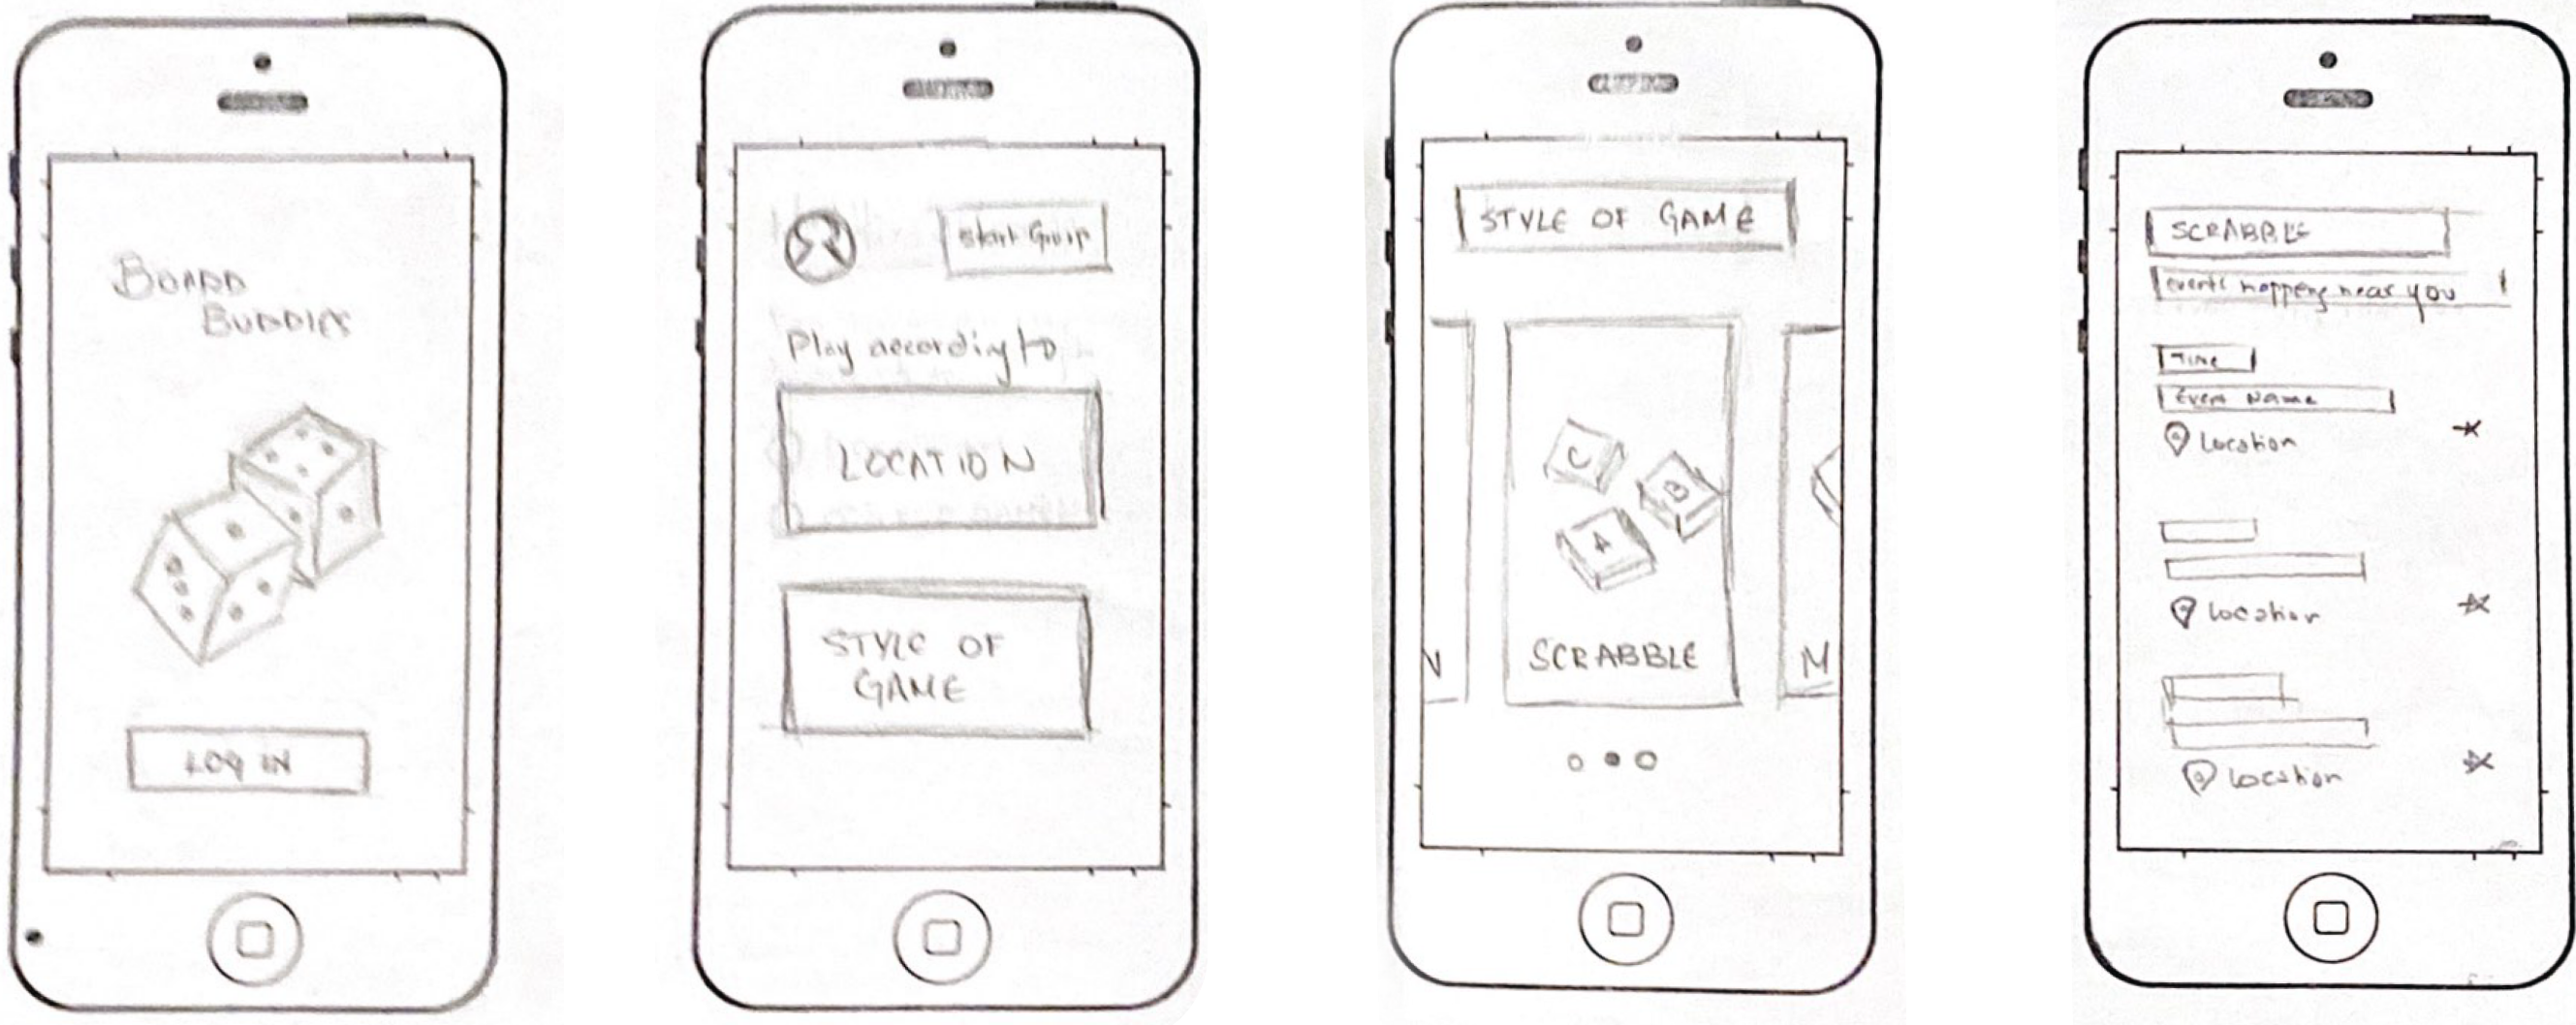 BOARD
BUDDIES
LOG IN
Start Group
Play according to
LOCATION
STYLE OF
GAME
STYLE OF GAME
C
B
A
V
SCRABBLE
M
SCRABBLE
events happeng near you
Time
Event Name
Location
Location
Location